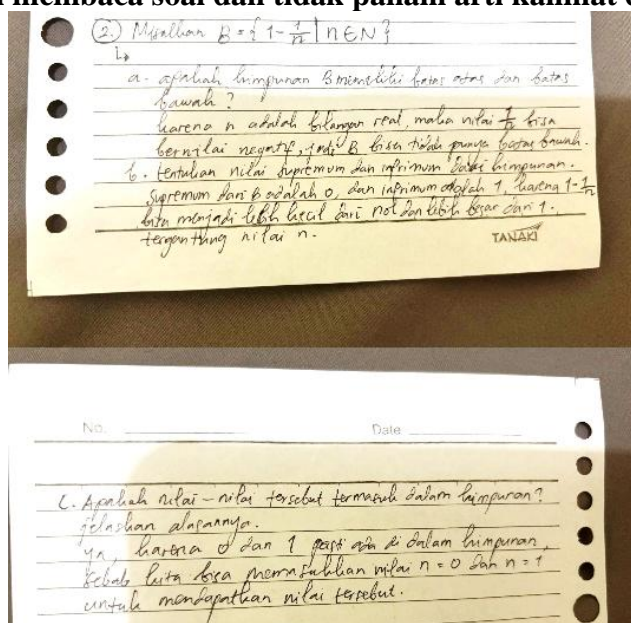 membaca soal dan tidak paham arti kalimat
② Misalkan B = { 1 - 1/n | n ∈ N }
↳
a. apakah himpunan B memiliki batas atas dan batas
bawah ?
karena n adalah bilangan real, maka nilai 1/n bisa
bernilai negatif, jadi B bisa tidak punya batas bawah.
b. tentukan nilai supremum dan infrimum dari himpunan.
Supremum dari B adalah 0, dan infrimum adalah 1, karena 1 - 1/n
bisa menjadi lebih kecil dari nol dan lebih besar dari 1.
tergantung nilai n.
TANAKI
No.
Date
C. Apakah nilai - nilai tersebut termasuk dalam himpunan?
jelaskan alasannya.
ya, karena 0 dan 1 pasti ada di dalam himpunan,
sebab kita bisa memasukkan nilai n = 0 dan n = 1
untuk mendapatkan nilai tersebut.